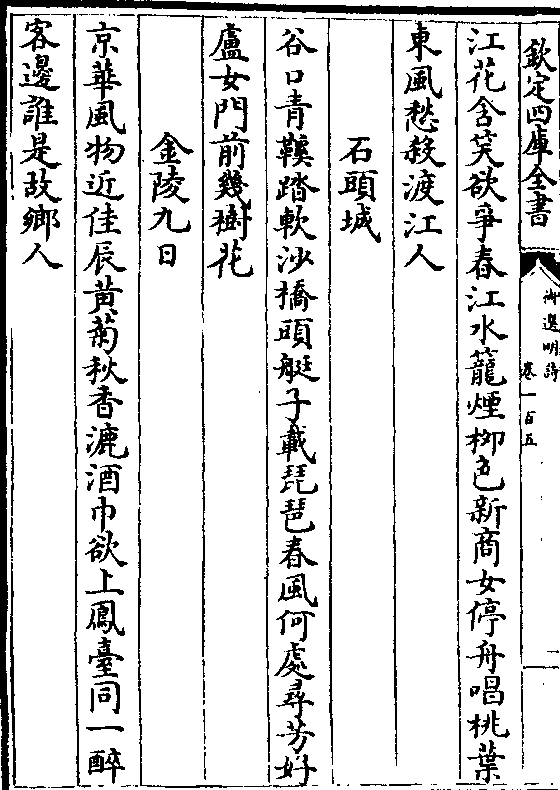 欽定四庫全書
御選明詩
卷一百五
二
江花含笑欲爭春江水籠煙柳色新商女停舟唱桃葉
東風愁殺渡江人
石頭城
谷口青鞵踏軟沙橋頭艇子載琵琶春風何處尋芳好
盧女門前幾樹花
金陵九日
京華風物近佳辰黃菊秋香漉酒巾欲上鳳臺同一醉
客邊誰是故鄉人